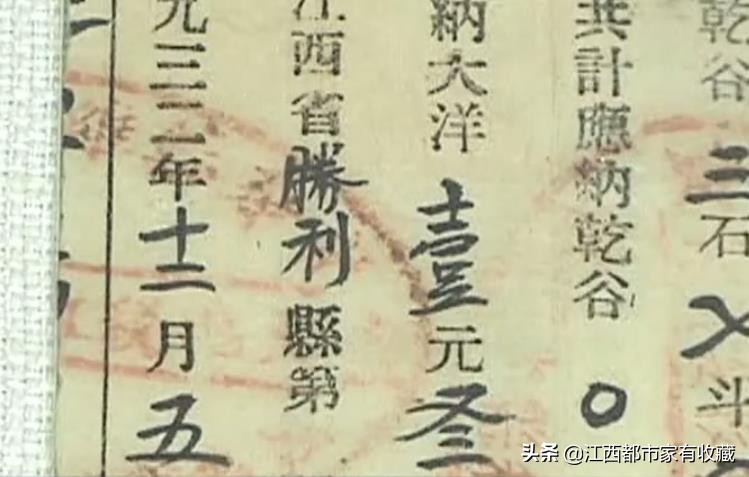 乾谷三石〤斗
共計應納乾谷〇
納大洋壹元叁
江西省勝利縣第
九三二年十二月五
头条 @江西都市家有收藏